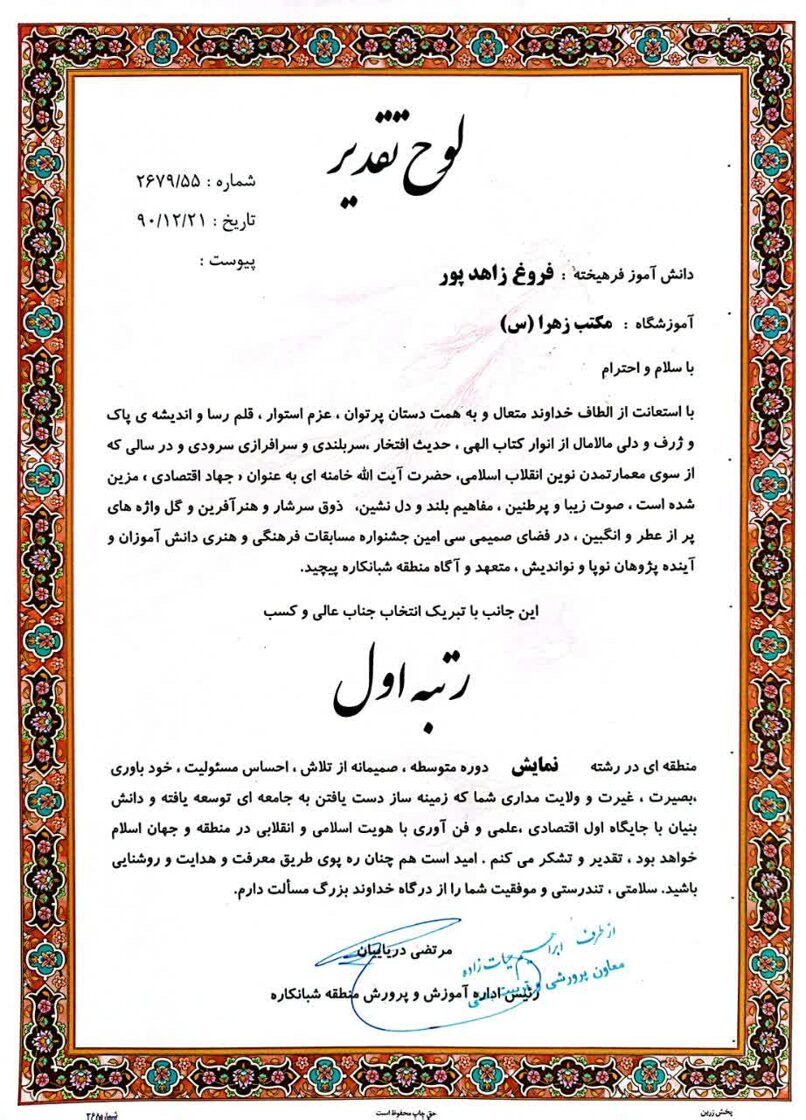 لوح تقدیر
شماره : ۲۶۷۹/۵۵
تاریخ : ۹۰/۱۲/۲۱
پیوست :
دانش آموز فرهیخته : فروغ زاهد پور
آموزشگاه : مکتب زهرا (س)
با سلام و احترام
با استعانت از الطاف خداوند متعال و به همت دستان پرتوان ، عزم استوار ، قلم رسا و اندیشه ی پاک
و ژرف و دلی مالامال از انوار کتاب الهی ، حدیث افتخار ،سربلندی و سرافرازی سرودی و در سالی که
از سوی معمارتمدن نوین انقلاب اسلامی، حضرت آیت الله خامنه ای به عنوان « جهاد اقتصادی » مزین
شده است ، صوت زیبا و پرطنین ، مفاهیم بلند و دل نشین، ذوق سرشار و هنرآفرین و گل واژه های
پر از عطر و انگبین ، در فضای صمیمی سی امین جشنواره مسابقات فرهنگی و هنری دانش آموزان و
آینده پژوهان نوپا و نواندیش ، متعهد و آگاه منطقه شبانکاره پیچید.
این جانب با تبریک انتخاب جناب عالی و کسب
رتبه اول
منطقه ای در رشته نمایش دوره متوسطه ، صمیمانه از تلاش ، احساس مسئولیت ، خود باوری
،بصیرت ، غیرت و ولایت مداری شما که زمینه ساز دست یافتن به جامعه ای توسعه یافته و دانش
بنیان با جایگاه اول اقتصادی ،علمی و فن آوری با هویت اسلامی و انقلابی در منطقه و جهان اسلام
خواهد بود ، تقدیر و تشکر می کنم . امید است هم چنان ره پوی طریق معرفت و هدایت و روشنایی
باشید. سلامتی ، تندرستی و موفقیت شما را از درگاه خداوند بزرگ مسألت دارم.
از طرف ابراهیم حیات زاده
معاون پرورشی و تربیت بدنی
مرتضی دریاییان
رئیس اداره آموزش و پرورش منطقه شبانکاره
پخش زرین
حق چاپ محفوظ است